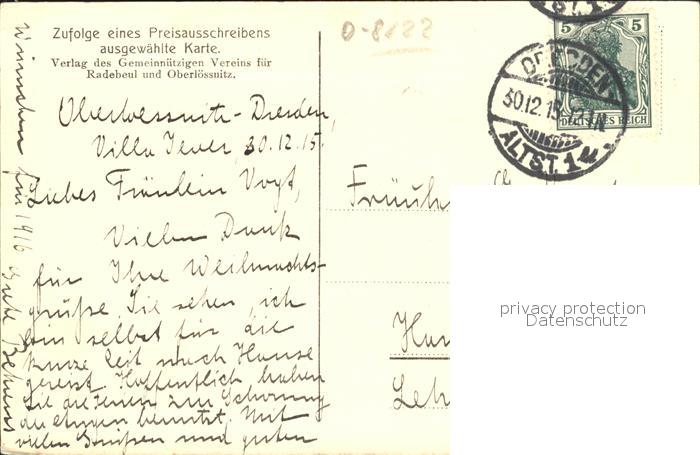 Zufolge eines Preisausschreibens
ausgewählte Karte.
Verlag des Gemeinnützigen Vereins für
Radebeul und Oberlössnitz.
0-8122
5 5
DEUTSCHES REICH
DRESDEN
30.12.15
ALTST. 1
Dresden,
Villa 30.12.15.
Liebes Fräulein Vogt,
Vielen Dank
für Ihre Weihnachts-
grüße. Sie sehen, ich
bin selbst für die
kurze Zeit nach Hause
gereist. Hoffentlich haben
Sie die Ferien zur Schonung
der Augen benutzt. Mit
vielen Grüßen und guten
Wünschen für 1916 Grete
privacy protection
Datenschutz